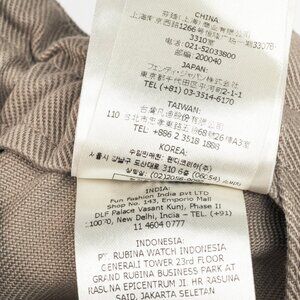 CHINA:
上海南京西路1266号恒隆广场一期3307B-
3310室
电话: 021-52033800
邮编: 200040
JAPAN:
フェンディ・ジャパン株式会社
東京都千代田区平河町2-1-1
TEL (+81) 03-3514-6170
TAIWAN:
TEL: +886 2 3518 1888
KOREA:
서울시 강남구 도산대로 310 6층 (06054)
INDIA:
Fun Fashion India pvt LTD
Shop No. 143, Emporio Mall
DLF Palace Vasant Kunj, Phase II
New Delhi, India - TEL: (+91)
11 4604 0777
INDONESIA:
PT. RUBINA WATCH INDONESIA
GENERALI TOWER 23rd FLOOR
GRAND RUBINA BUSINESS PARK AT
RASUNA EPICENTRUM JI. HR RASUNA
SAID, JAKARTA SELATAN